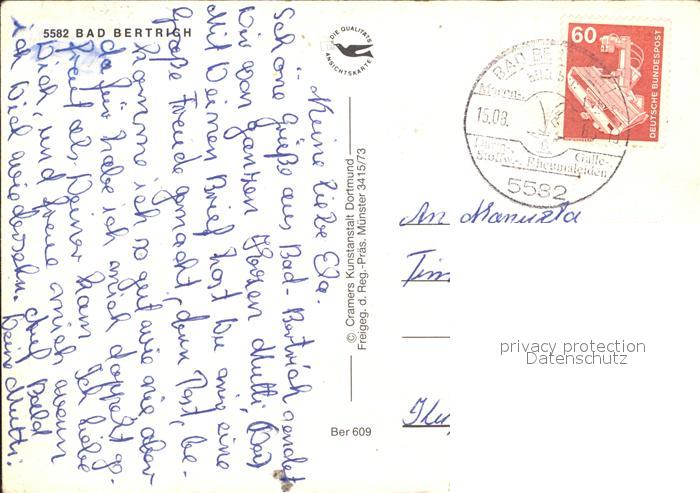 5582 BAD BERTRICH
DIE QUALITÄTS
ANSICHTSKARTE
Meine liebe Ela.
Schöne Grüße aus Bad-Bertrich sendet
Dir von ganzen Herzen Mutti,
Mit Deinen Brief hast Du mir eine
große Freude gemacht, denn Post, be-
komme ich so gut wie nie aber
da für habe ich mich doppelt ge-
freut als Deiner kam. Ich liebe
Dich, und freue mich wenn
ich Dich wiedersehn. Auf Bald
Deine Mutti.
© Cramers Kunstanstalt Dortmund
Freigeg. d. Reg.-Präs. Münster 3415/73
Ber 609
60
DEUTSCHE BUNDESPOST
BAD BE
Magen-
15.08.
Galle-
Stoffw.- Rheumaleiden
5582
An Manuela
privacy protection
Datenschutz